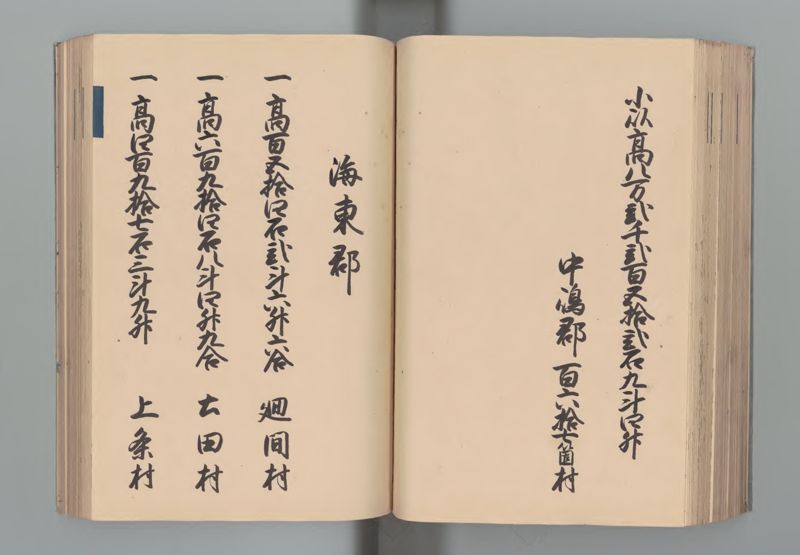 小以高八万弐千弐百五拾弐石九斗四升
中嶋郡 百六拾七箇村
海東郡
一 高百五拾四石弐斗六升六合 廻間村
一 高六百九拾四石八斗四升九合 土田村
一 高四百九拾七石三斗九升 上条村